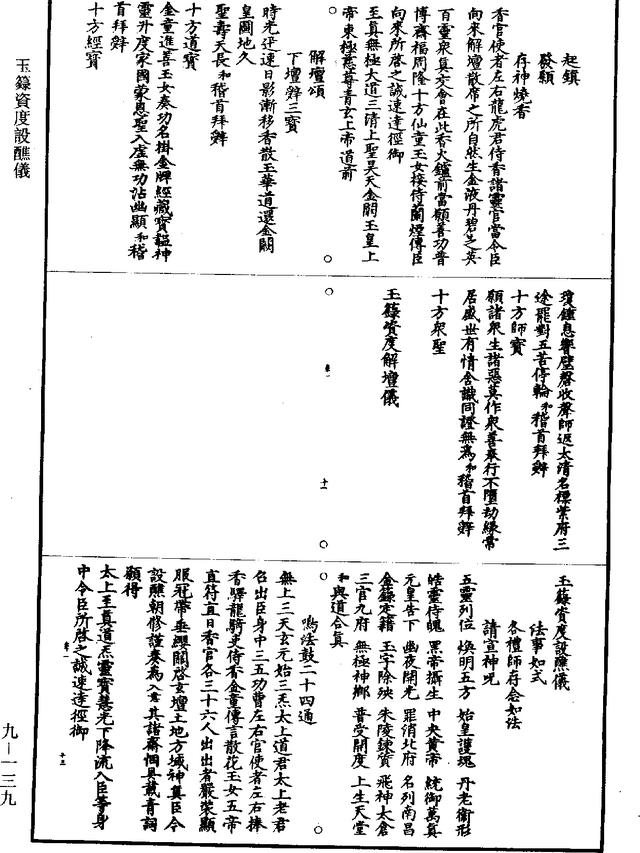 起鎮
發願
存神燒香
香官使者左右龍虎君侍香諸靈官當令臣
向來解壇散席之所自然生金液丹碧芝英
百靈衆真交會在此香火鑪前當願善功普
博齋福周隆十方仙童玉女接侍蘭煙傳臣
向來所啓之誠速達徑御
至真無極大道三清上聖昊天金闕玉皇上
帝東極慈尊青玄上帝道前
解壇頌
下壇辭三寶
時光迅速日影漸移香散玉華道還金闕
皇圖地久
聖壽天長和稽首拜辭
十方道寶
金童進善玉女奏功名掛金牌經藏寶謳神
靈升度家國蒙恩聖入虛無功沾幽顯和稽
首拜辭
十方經寶
瓊鍾息響璧磬收聲師返太清名標紫府三
途罷對五苦停輪和稽首拜辭
十方師寶
願諸衆生諸惡莫作衆善奉行不墮劫緣常
居盛世有情含識同證無為和稽首拜辭
十方衆聖
玉籙資度解壇儀
十一
玉籙資度設醮儀
法事如式
各禮師存念如法
請宣神呪
五靈列位 煥明五方 始皇護魂 丹老衛形
皓靈侍魄 黑帝攝生 中央黃帝 統御萬真
元皇告下 幽夜開光 罪消北府 名列南昌
金籙定籍 玉字除殃 朱陵鍊質 飛神太倉
三官九府 無極神鄉 普受開度 上生天堂
和與道合真
鳴法鼓二十四通
無上三天玄元始三炁太上道君太上老君
召出臣身中三五功曹左右官使者左右捧
香驛龍騎吏侍香金童傳言散花玉女五帝
直符直日香官各三十六人出出者嚴裝顯
服冠帶垂纓關啓玄壇土地方域神真臣今
設醮朝修謹奏為入意其諸齋悃具載青詞
願得
太上至真道炁靈寶慧光下降流入臣等身
中令臣所啓之誠速達徑御
十二
玉籙資度設醮儀
九—一三九